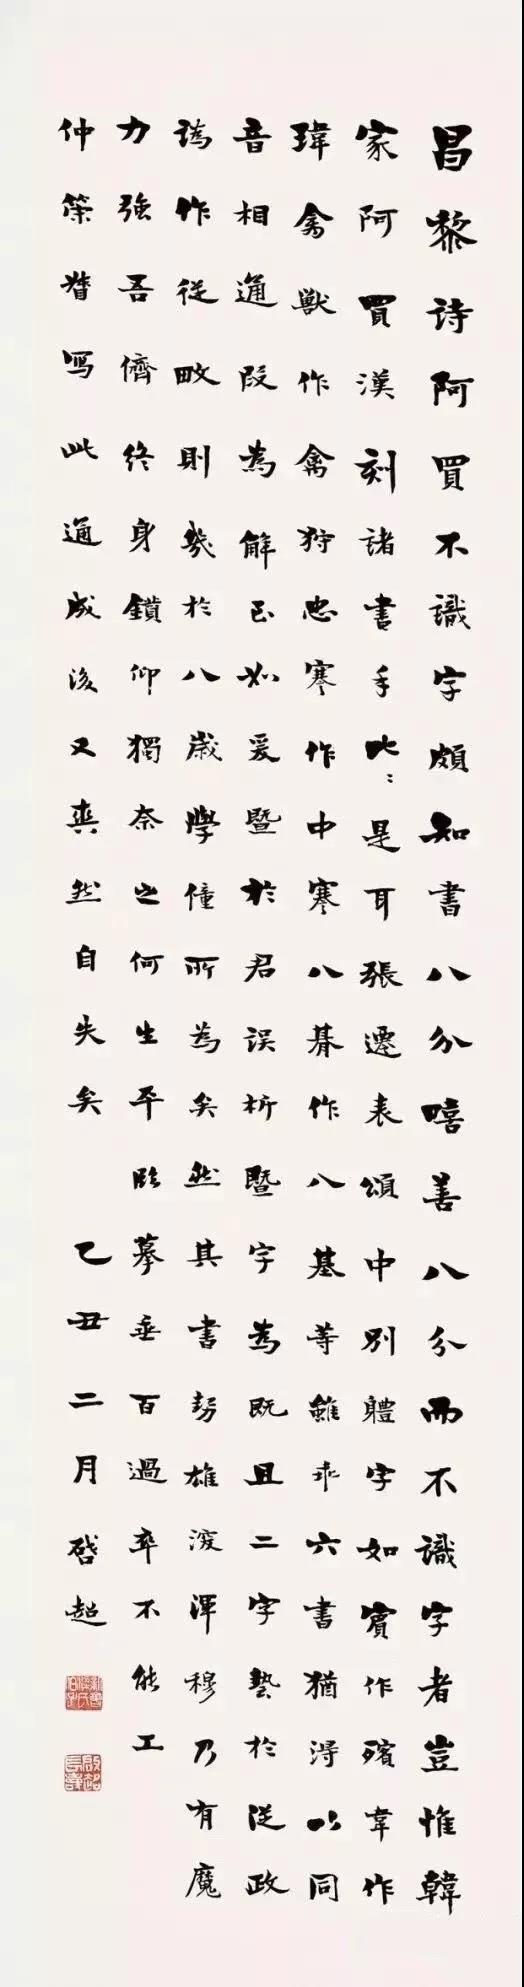 昌黎詩阿買不識字頗知書八分嘻善八分而不識字者豈惟韓
家阿買漢刻諸書手比比是耳張遷表頌中別體字如賓作殯韋作
瑋禽獸作禽狩忠謇作中謇八朞作八基等雖乖六書猶得以同
音相通叚為解已如爰暨於君誤析暨字為既且二字藝於從政
譌作從畋則幾於八歲學僮所為矣然其書勢雄浚渾穆乃有魔
力強吾儕終身鑽仰獨奈之何生平臨摹垂百過卒不能工
仲策督寫此通成後又爽然自失矣 乙丑二月 啟超